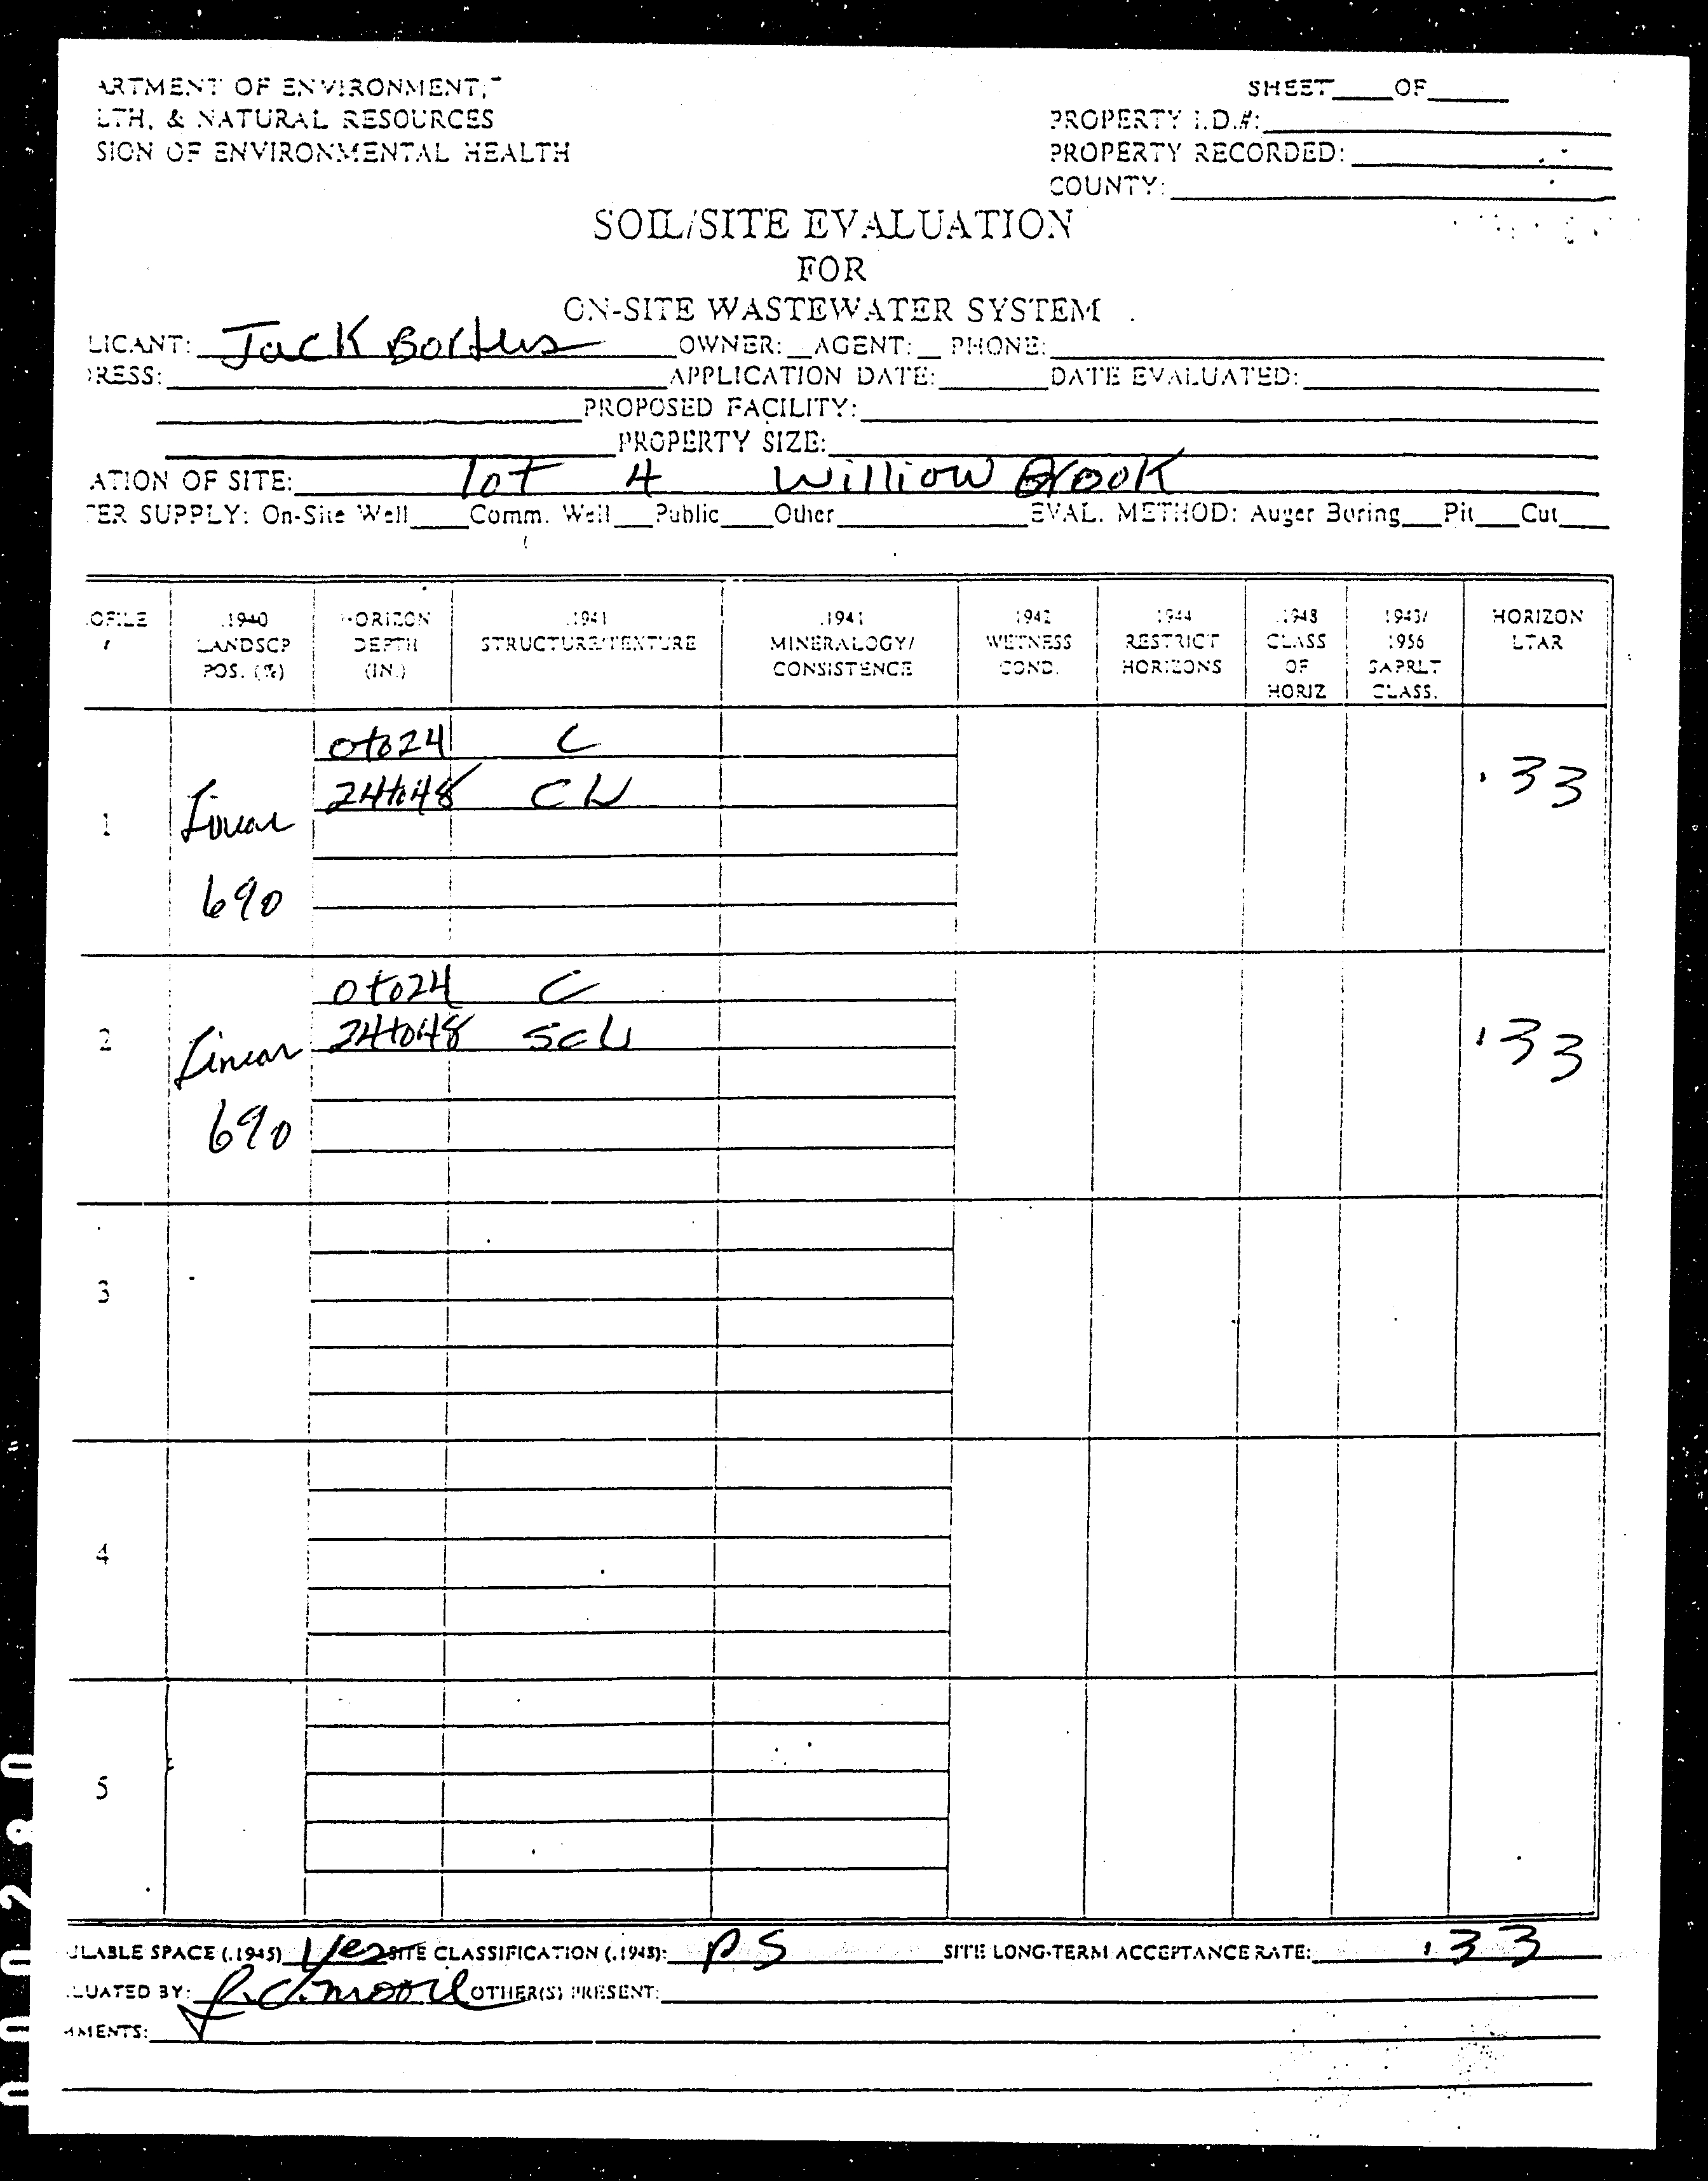 ARTMENT OF ENVIRONMENT,
LTH, & NATURAL RESOURCES
SION OF ENVIRONMENTAL HEALTH
SHEET____OF____
PROPERTY I.D.#:
PROPERTY RECORDED:
COUNTY:
SOIL/SITE EVALUATION
FOR
ON-SITE WASTEWATER SYSTEM
LICANT: Jack OWNER: __AGENT: __ PHONE:
RESS: APPLICATION DATE: DATE EVALUATED:
PROPOSED FACILITY:
PROPERTY SIZE:
ATION OF SITE: lot 4 Williow Brook
TER SUPPLY: On-Site Well____Comm. Well___Public____Other____EVAL. METHOD: Auger Boring___Pit___Cut___
OFILE .1940 LANDSCP POS. (%) HORIZON DEPTH (IN.) .1941 STRUCTURE/TEXTURE .1941 MINERALOGY/ CONSISTENCE .1942 WETNESS COND. .1944 RESTRICT HORIZONS .1948 CLASS OF HORIZ .1943/ .1956 SAPRLT CLASS. HORIZON LTAR
0 to 24 C
24 to 48 CL .33
1 Linear
6%
0 to 24 C
2 Linear 24 to 48 SCL .33
6%
3
4
5
ILABLE SPACE (.1945) Yes SITE CLASSIFICATION (.1948): PS SITE LONG-TERM ACCEPTANCE RATE: .33
LUATED BY: Moore OTHER(S) PRESENT:
MMENTS: